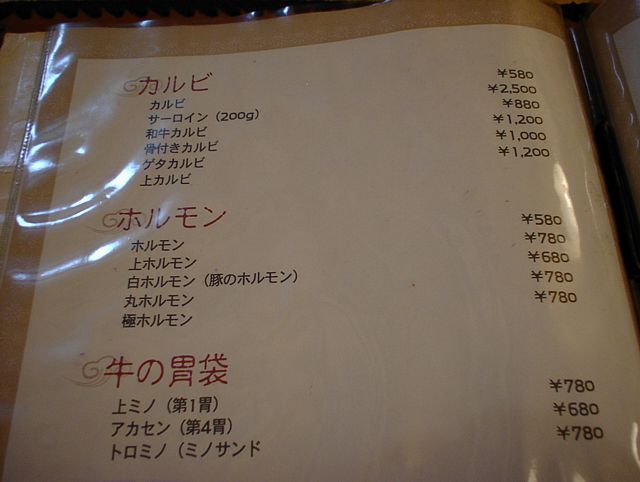 カルビ
カルビ ¥580
サーロイン（200g） ¥2,500
和牛カルビ ¥880
骨付きカルビ ¥1,200
ゲタカルビ ¥1,000
上カルビ ¥1,200
ホルモン
ホルモン ¥580
上ホルモン ¥780
白ホルモン（豚のホルモン） ¥680
丸ホルモン ¥780
極ホルモン ¥780
牛の胃袋
上ミノ（第1胃） ¥780
アカセン（第4胃） ¥680
トロミノ（ミノサンド ¥780